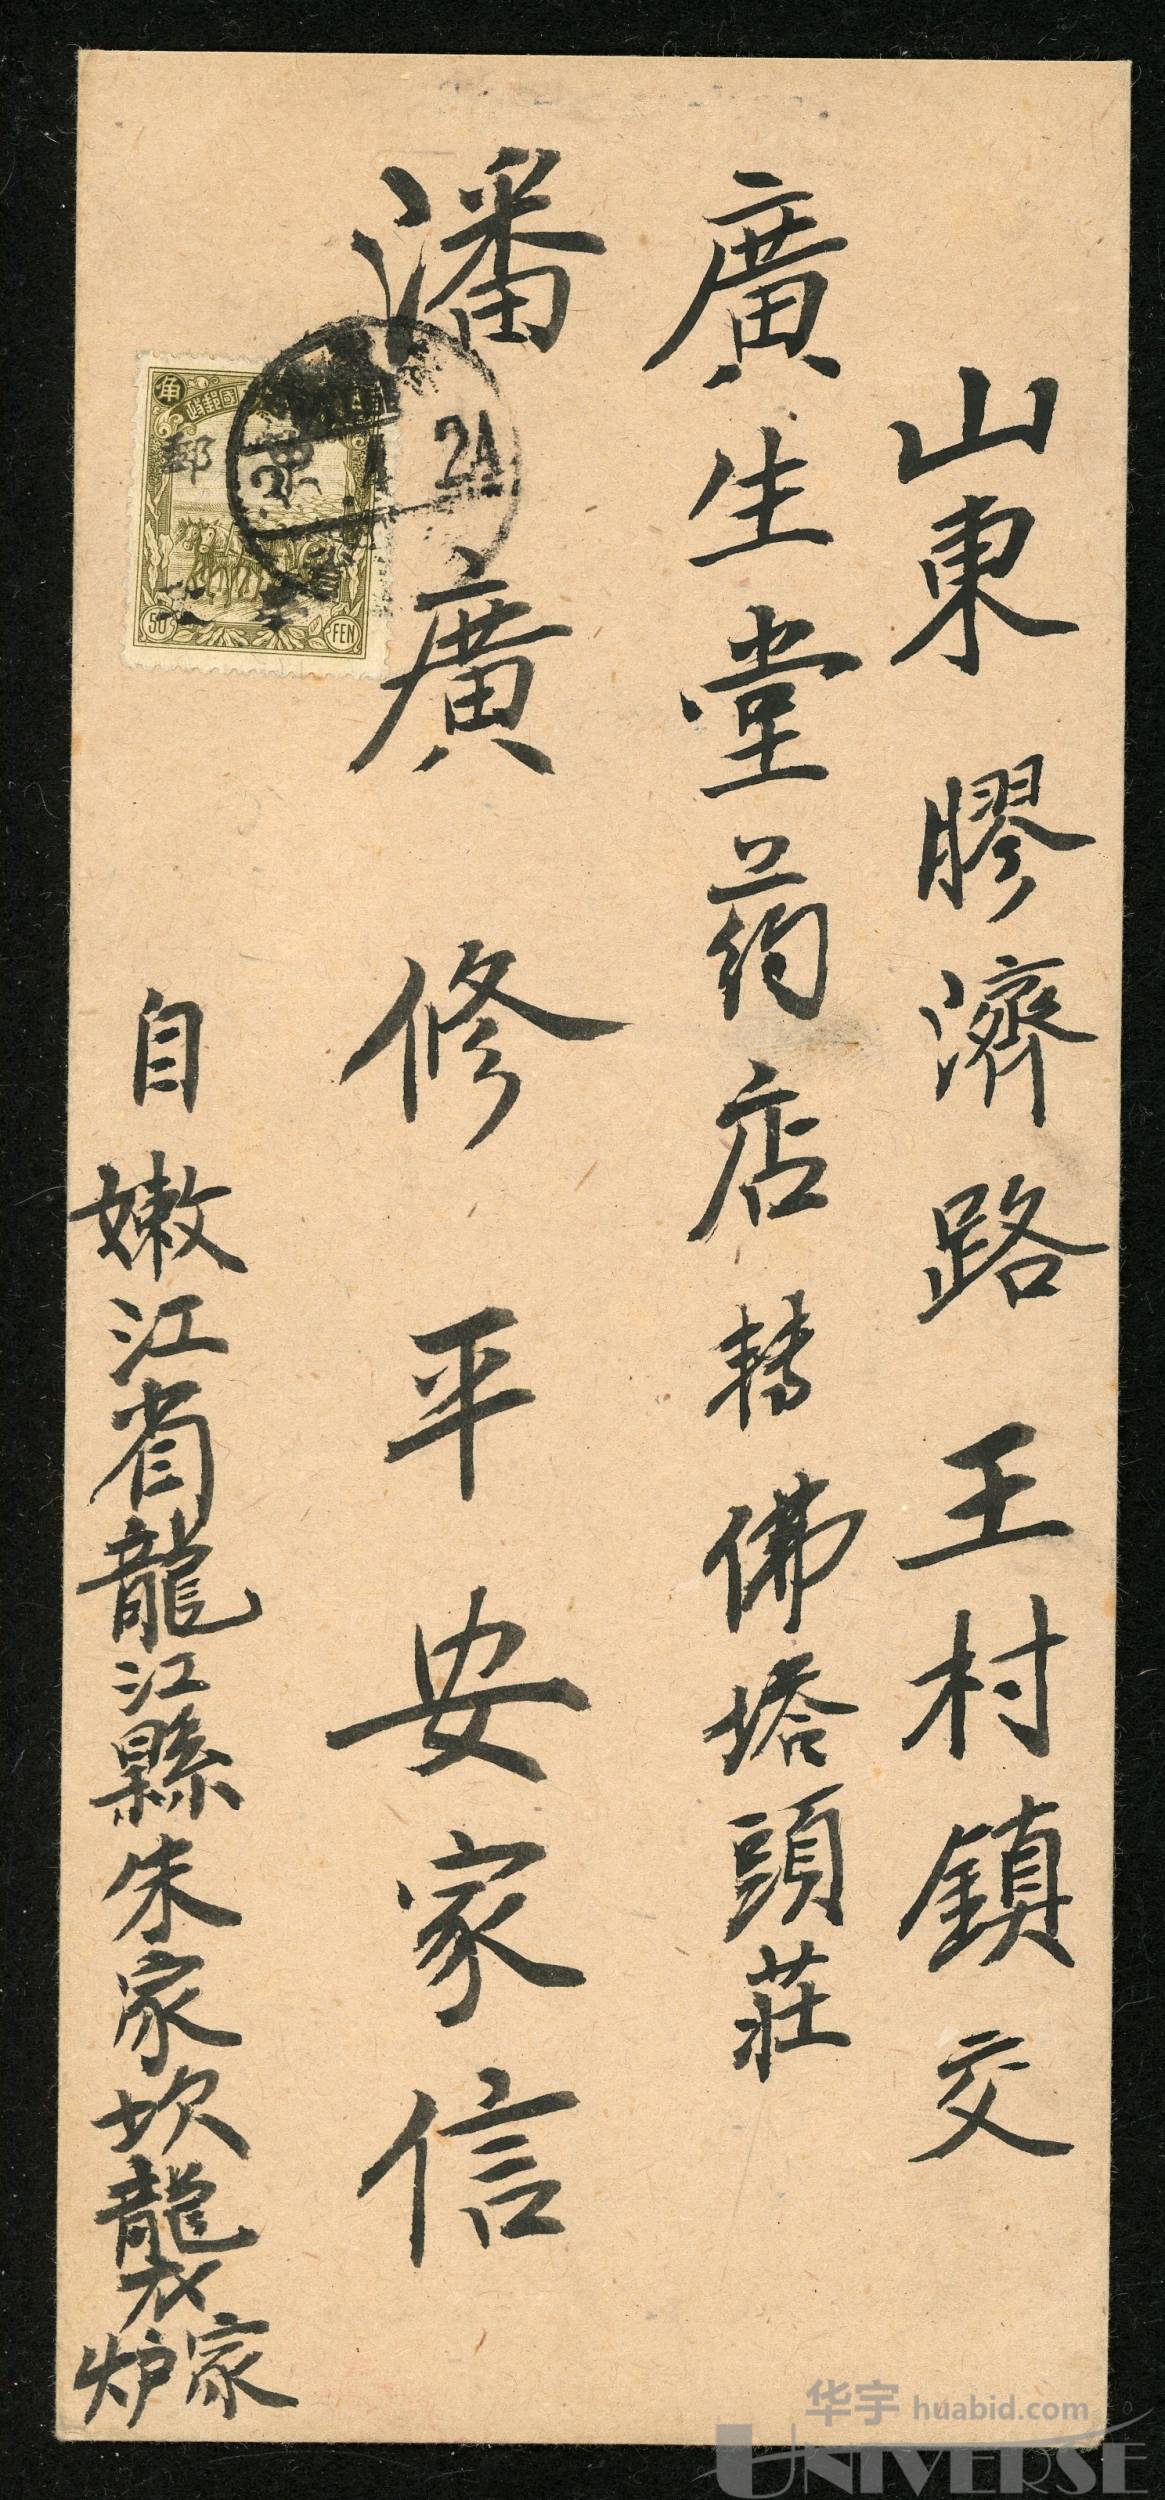 山東膠濟路王村鎮交
廣生堂药店轉佛塔頭莊
潘廣修平安家信
自嫩江省龍江縣朱家坎龔家炉
角
國郵政
郵
50
FEN
2A
华宇 huabid.com
UNIVERSE